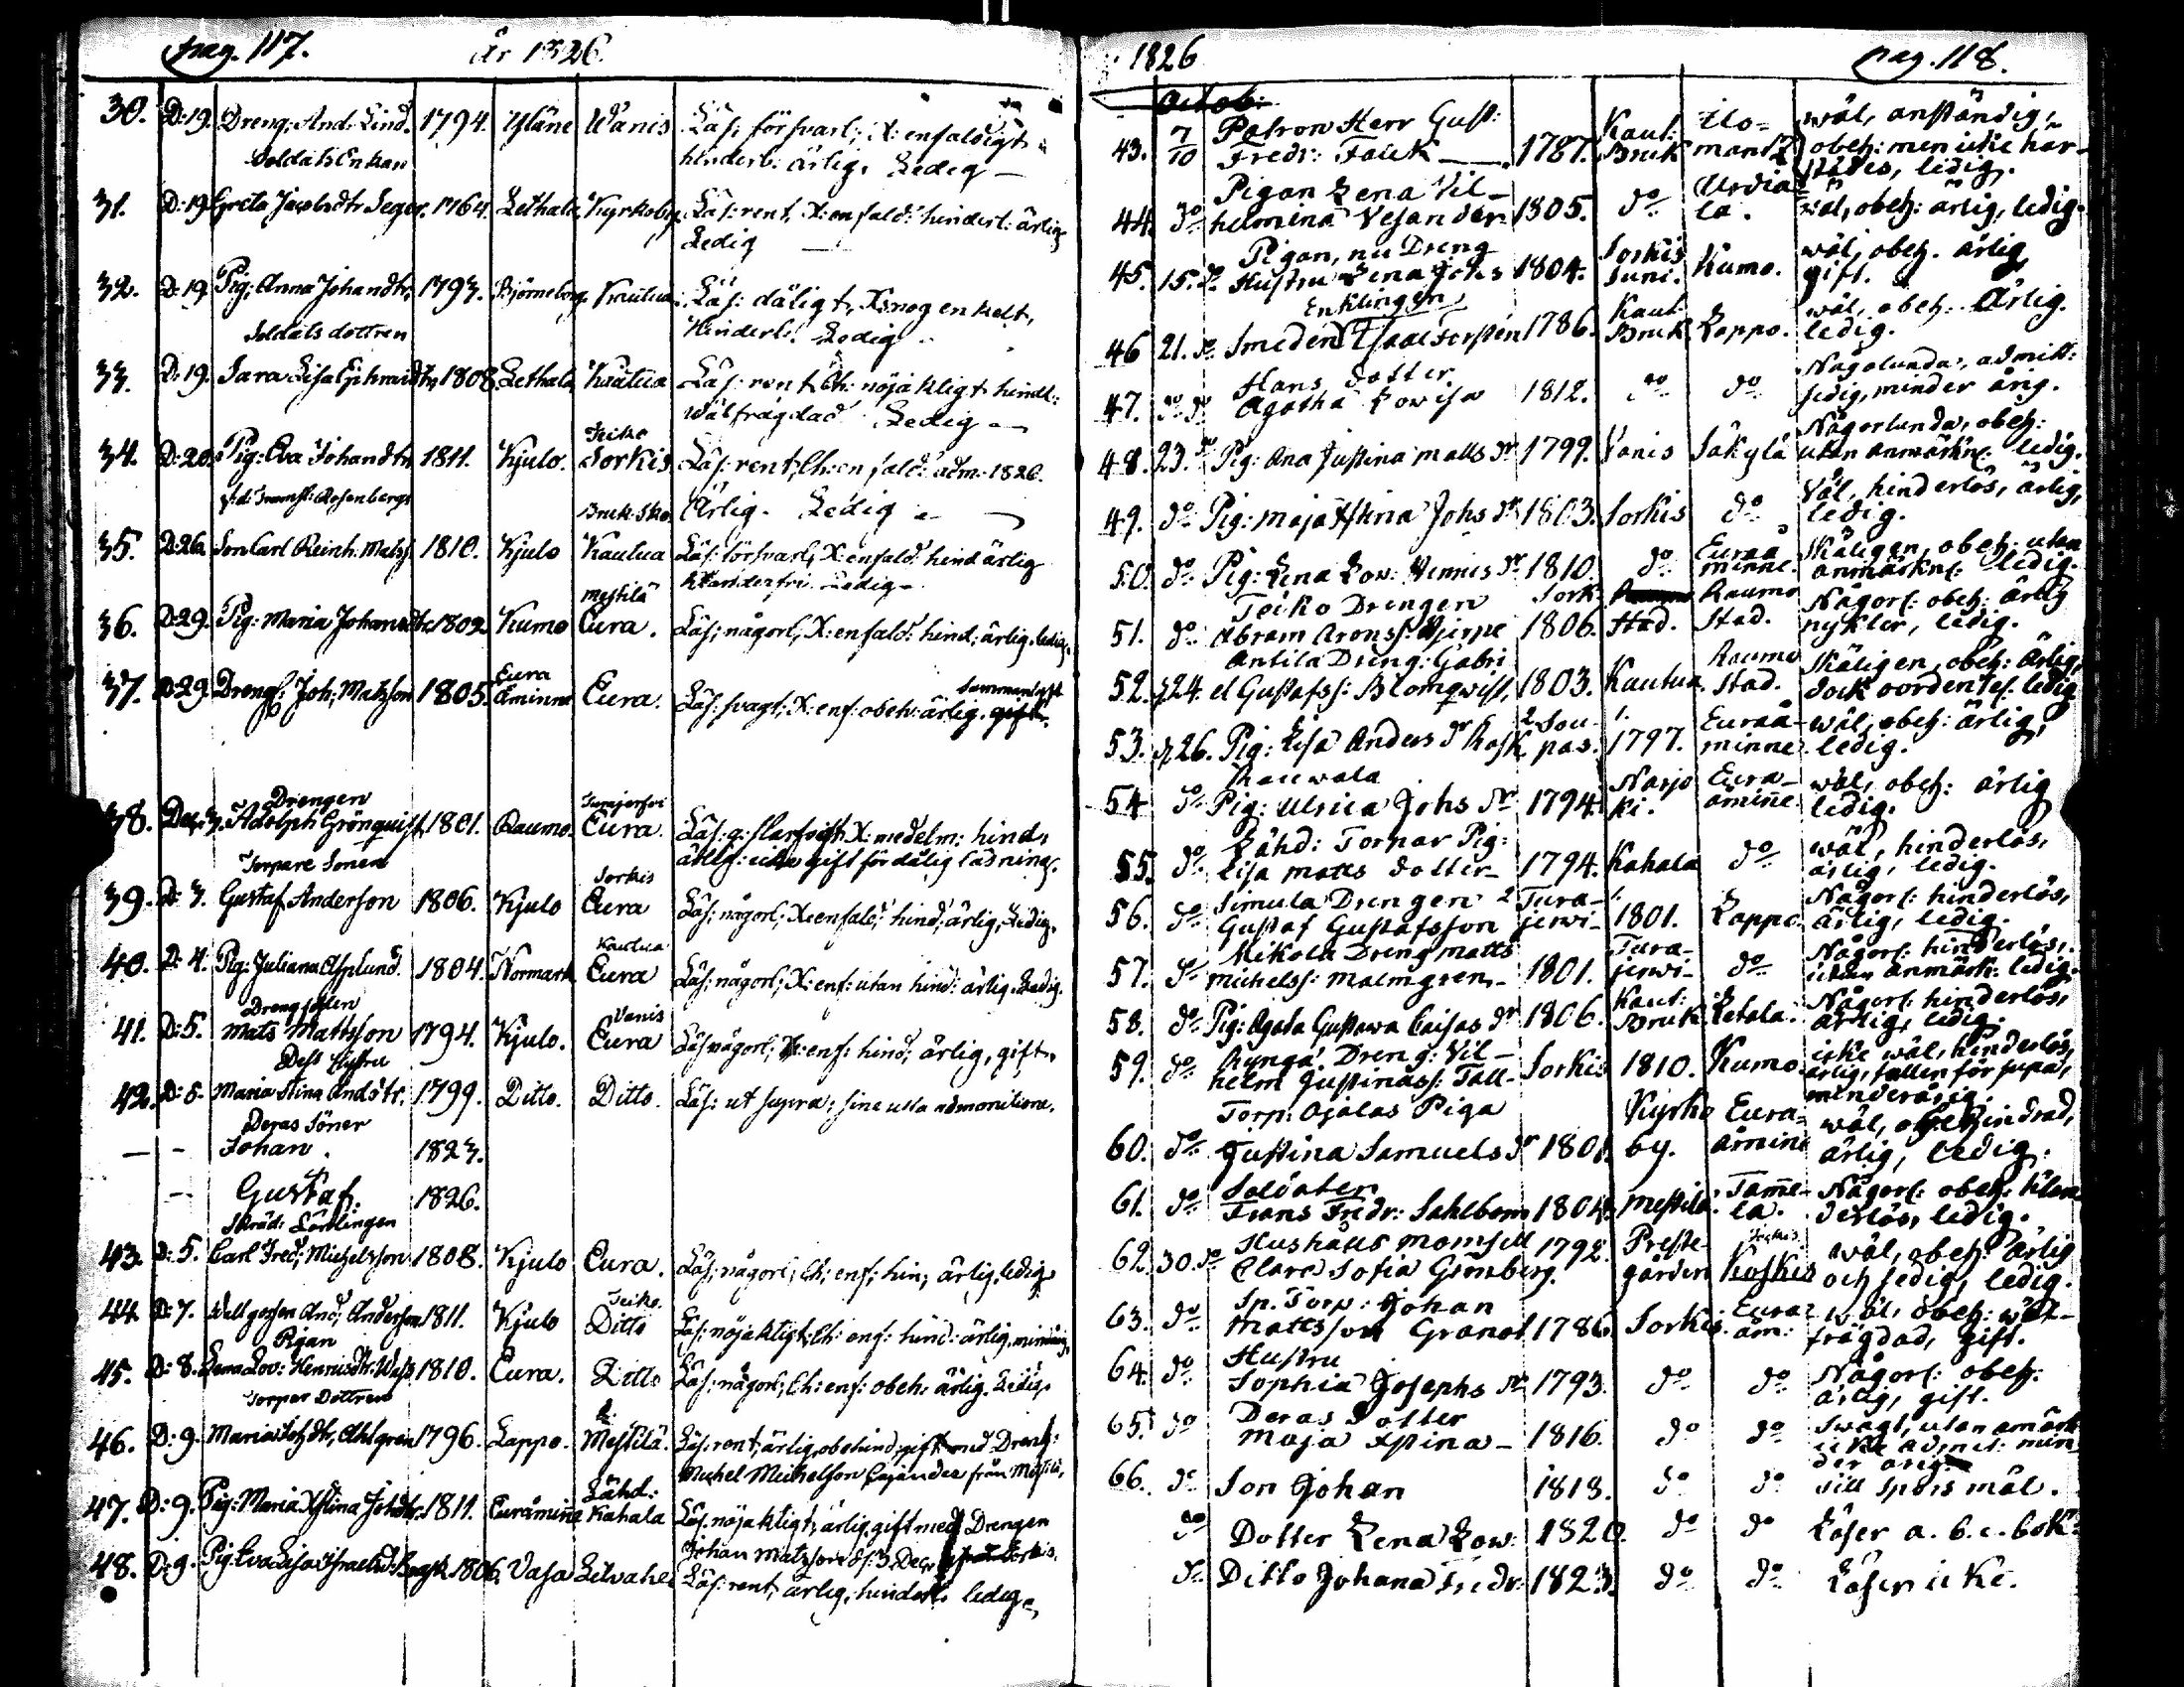 pag. 117. År 1826.
30. D: 19. Dreng: And: Lind. 1794. Yläne Wanis Läs: försvarl; X: enfaldigt
hinderl: ärlig. Ledig —
Soldats Enkan
31. D: 19. Greta Jacobsdtr Seger. 1764. Lethala Kyrkoby. Läs: rent, X: enfald: hinderl: ärlig
Ledig —
32. D: 19. Pig: Anna Johandtr, 1793. Björneborg Kautua. Läs: däligt, X: nog enkelt,
Hinderl: Ledig
Soldats dottren
33. D: 19. Sara Lisa 1808. Lethala Kautua Läs: rent Ch: nöjakligt hindl:
wälfrägdad Ledig —
Teiko
34. D: 20. Pig: Eva Johandtr 1811. Kjulo. Sorkis Läs: rent; Ch: enfald: adm: 1826.
Ärlig. Ledig —
Rosenbergs Bruk. Sko
35. D: 26. Son Carl Reinh. Matss. 1810. Kjulo Kautua Läs: försvarl; X: enfald: hind ärlig
klanderfri Ledig —
Mestilä
36. D: 29. Pig: Maria Johansdtr 1802. Kumo Eura. Läs; någorl; X: enfald: hind; ärlig. ledig.
Eura sammanlyst
37. D: 29. Drengs: Joh: Matzson 1805. Åminne Eura. Läs: svagt; X: enf: obeh: ärlig. gift.
Drengen
38. Dec. 3. Adolph Grönquist 1801. Raumo. Eura. Läs: X: medelm: hind,
ärlig: icke gift för dålig läsning.
Torpare Sonen Sorkis
39. D: 3. Gustaf Anderson 1806. Kjulo Eura Läs; någorl; X: enfald; hind; ärlig, Ledig.
Kautua
40. D: 4. Pig: Juliana Asplund. 1804. Normark Eura Läs; någorl; X: enf: utan hind: ärlig. Ledig.
Drengsulen Vanis
41. D: 5. Mats Mattsson 1794. Kjulo. Eura Läs någorl; X: enf: hind; ärlig, gift.
Dess Hustru
42. D: 5. Maria Stina Andstr. 1799. Ditto. Ditto. Läs: ut supra: sine ulla admonitione.
Deras Söner
— - Johan. 1823.
— Gustaf. 1826.
Skräd: Lärlingen
43. D: 5. Carl Fred: Michelsson 1808. Kjulo Eura. Läs; någorl; Ch: enf; hin; ärlig, ledig
Teiko.
44. D: 7. Wallgossen And: Anderson 1811. Kjulo Ditto Läs: nöjakligt; Ch: enf: hind: ärlig, minärig,
Pigan
45. D: 8. Lena Lov: Henricsdtr. 1810. Eura. Ditto Läs: någorl; Ch: enf: obeh: ärlig. Ledig.
Torpar Dottren
46. D: 9. Maria Joh dtr, Ahlgren 1796. Lappo. Mestilä. Läs: rent; ärlig, obehind, gift med Dreng:
Michel Michelson Cajander från Mestilä,
Lähd:
47. D: 9. Pig: Maria Xstina Johdtr. 1811. Euråminne Kahala Läs. nöjakligt; ärlig, gift med Drengen
Johan Matzson d: 3 Dec.
48. D: 9. Pig: Eva Lisa Israelsd: 1806. Vasa Läs: rent, ärlig, hinderl: ledig.
1826 pag. 118.
Octob:
43. 7/10 Patron Herr Gust:
Fredr: Falck —. 1787. Kaut: Bruk Ilomants wäl, anständig,
obeh: men icke här-
städes, ledig.
44. do Pigan Lena Vil-
helmina Vesander 1805. do Urdiala. wäl, obeh: ärlig, ledig.
Pigan, nu Dreng
45. 15. do Hustru Lena Johs 1804. Sorkis Kumo. wäl, obeh. ärlig
gift.
Enklingen
46 21. do Smeden Isaac Forstén 1786. Kaut Bruk. Lappo. wäl, obeh: Ärlig.
ledig.
47. do do Hans Dotter
Agatha Lowisa 1812. do do Någolunda, admitt:
ledig, minder årig.
48. 23. do Pig: Ana Justina Matts dr 1799. Vanis Säkylä Någorlunda, obeh:
utan anmärkn: ledig.
49. do Pig: Maja Xstina Johs dr 1803. Sorkis do Väl, hinderlös, ärlig,
ledig.
50. do Pig: Lena Lov: Hinnis dr 1810. do Euraå minne. Skäligen, obeh: utan
anmärkn: ledig.
51. do Teiko Drengen
Abram Aronss: Hjerpe 1806. Sork: Stad. Raumo Stad. Någorl: obeh: ärlig
nykter, ledig.
52. d 24. Antila Dreng: Gabri
el Gustafss: Blomqwist, 1803. Kautua. Raumo Stad. Skäligen, obeh: Ärlig,
dock oordentel: ledig
53. d 26. Pig: Lisa Anders dr Rask Soupas. 1797. Euraå minne wäl, obeh: ärlig,
ledig.
54 do Rauwala
Pig: Ulrica Johs dr 1794. Narjoki. Eura åmiñe wäl, obeh: ärlig
ledig.
55. do Lähd: Tornar Pig:
Lisa Matts dotter 1794. Kahala do wäl, hinderlös,
ärlig, ledig.
56. do Simula Drengen
Gustaf Gustafsson Turajerwi 1801. Lappo. Någorl: hinderlös,
ärlig, ledig.
57. do Mikola Dreng Matts
Michelss: Malmgren 1801. Turajerwi do Någorl: hinderlös,
utan anmärk: ledig.
58. do Pig: Agata Gustawa Caisas dr 1806. Kaut: Bruk. Letala. Någorl: hinderlös,
ärlig, ledig.
59. do Dreng: Vil-
helm Justinass: Tall- Sorkis 1810. Kumo icke wäl, hinderlös,
ärlig, fallen för supa,
minderårig.
60. do Torp: Ojalas Piga
Justina Samuels dr 1801. Kyrko by. Eura åmine wäl, obehindrad,
ärlig, ledig.
61. do Soldaten
Frans Fredr: Sahlbom 1804. Mestilä. Tam̃ela. Någorl: obeh: klan
derlös, ledig.
62. 30. do Hushålls Momsell
Clara Sofia Grönberg. 1792. Prestegården Koskis wäl, obeh: ärlig
och sedig, ledig.
63. do Sp. Torp: Johan
Mattsson Granat 1786. Sorkis. Eura åm: wäl, obeh: wäl-
frägdad, gift.
64. do Hustru
Sophia Josephs dr 1793. do do Någorl: obeh:
ärlig, gift.
65. do Deras Dotter
Maja Xstina - 1816. do do Swagt, utan anärk
icke admit: min
der årig.
66. do Son Johan 1818. do do till Spörsmål.
do Dotter Lena Low: 1820. do do Läser a. b. c. bok:
do Ditto Johana Fredr: 1823. do do Läser icke.